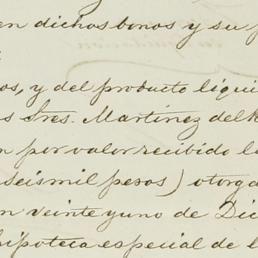 en dichos bonos y su p
os, y del producto liqui
s Sres. Martinez del R
n por valor recibido la
seis mil pesos) otorga
n veinte y uno de Dic
hipoteca especial de l